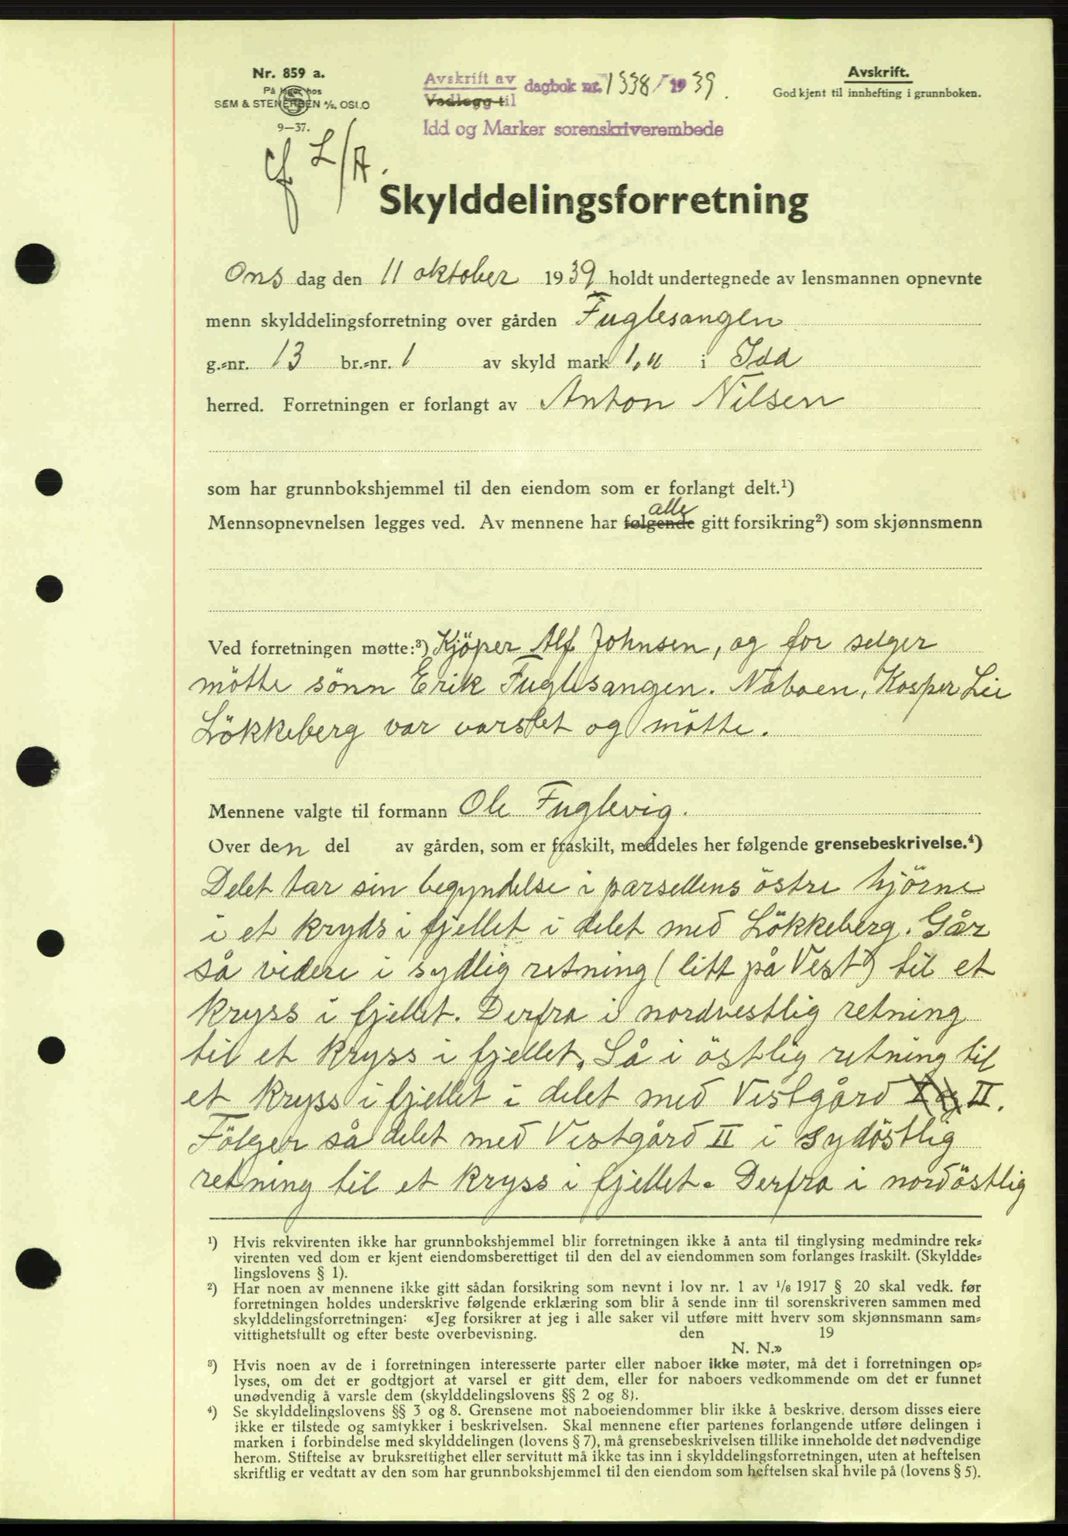 Nr. 859 a.
På lager hos
SEM & STENERSEN A/S, OSLO
9—37.
Avskrift av
Vedlegg til
dagbok nr. 1338/1939.
Idd og Marker sorenskriverembede
Avskrift.
Godkjent til innhefting i grunnboken.
cf L/A.
Skylddelingsforretning
Ons dag den 11 oktober 1939 holdt undertegnede av lensmannen opnevnte
menn skylddelingsforretning over gården Fuglesangen
g.-nr. 13 br.-nr. 1 av skyld mark 1,11 i Idd
herred. Forretningen er forlangt av Anton Nilsen
som har grunnbokshjemmel til den eiendom som er forlangt delt.¹)
alle
Mennsopnevnelsen legges ved. Av mennene har følgende gitt forsikring²) som skjønnsmenn
Ved forretningen møtte:³) Kjöper Alf Johnsen, og for selger
mötte sönn Erik Fuglesangen. Naboen, Kasper Lie
Lökkeberg var varslet og mötte.
Mennene valgte til formann Ole Fuglevig.
Over den del av gården, som er fraskilt, meddeles her følgende grensebeskrivelse.⁴)
Delet tar sin begyndelse i parsellens östre hjörne
i et kryds i fjellet i delet med Lökkeberg. Går
så videre i sydlig retning (litt på Vest) til et
kryss i fjellet. Derfra i nordvestlig retning
til et kryss i fjellet. Så i östlig retning til
et kryss i fjellet i delet med Vestgård I og II.
Fölger så delet med Vestgård II i sydöstlig
retning til et kryss i fjellet. Derfra i nordöstlig
¹) Hvis rekvirenten ikke har grunnbokshjemmel blir forretningen ikke å anta til tinglysing medmindre rek-
virenten ved dom er kjent eiendomsberettiget til den del av eiendommen som forlanges fraskilt. (Skyldde-
lingslovens § 1).
²) Har noen av mennene ikke gitt sådan forsikring som nevnt i lov nr. 1 av 1/6 1917 § 20 skal vedk. før
forretningen holdes underskrive følgende erklæring som blir å sende inn til sorenskriveren sammen med
skylddelingsforretningen: «Jeg forsikrer at jeg i alle saker vil utføre mitt hverv som skjønnsmann sam-
vittighetsfullt og efter beste overbevisning. den 19
N. N.»
³) Hvis noen av de i forretningen interesserte parter eller naboer ikke møter, må det i forretningen op-
lyses, om det er godtgjort at varsel er gitt dem, eller for naboers vedkommende om det er funnet
unødvendig å varsle dem (skylddelingslovens §§ 2 og 8).
⁴) Se skylddelingslovens §§ 3 og 8. Grensene mot naboeiendommer blir ikke å beskrive, dersom disses eiere
ikke er tilstede og samtykker i beskrivelsen. Skal mennene efter partenes forlangende utføre delingen i
marken i forbindelse med skylddelingen (lovens § 7), må grensebeskrivelsen tillike inneholde det nødvendige
herom. Stiftelse av bruksrettighet eller servitutt må ikke tas inn i skylddelingsforretningen, uten at heftelsen
skriftlig er vedtatt av den som har grunnbokshjemmel til den eiendom som heftelsen skal hvile på (lovens § 5).